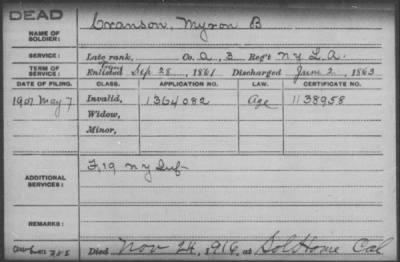 DEAD
NAME OF SOLDIER: Cranson, Myron B
SERVICE: Late rank, Co. A, 3 Reg't N Y L. A.
TERM OF SERVICE: Enlisted Sep 28, 1861 Discharged June 2, 1863
DATE OF FILING. CLASS. APPLICATION NO. LAW. CERTIFICATE NO.
1907 May 7 Invalid, 1364082 Age 1138958
Widow,
Minor,
ADDITIONAL SERVICES: F, 19 N Y Inf
REMARKS:
Died Nov 24, 1916, at Sol Home Cal